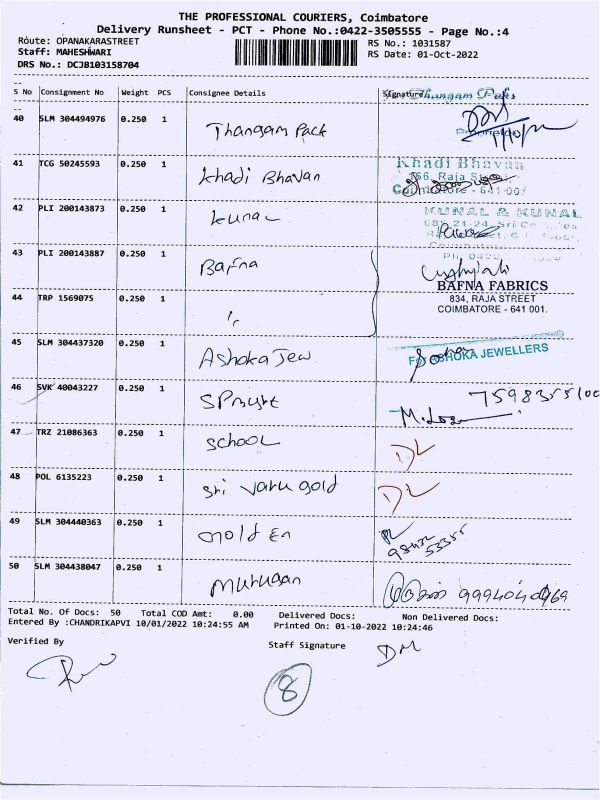 THE PROFESSIONAL COURIERS, Coimbatore
Delivery Runsheet - PCT - Phone No.:0422-3505555 - Page No.:4
Route: OPANAKARASTREET
Staff: MAHESHWARI
DRS No.: DCJB103158704
RS No.: 1031587
RS Date: 01-Oct-2022
S No Consignment No Weight PCS Consignee Details Signature
Thangam
40 SLM 304494976 0.250 1 Thangam Pack
41 TCG 50245593 0.250 1 Khadi Bhavan
Khadi Bhavan
Raja
641 001
42 PLI 200143873 0.250 1
KUNAL & KUNAL
43 PLI 200143887 0.250 1 Bafna
BAFNA FABRICS
834, RAJA STREET
COIMBATORE - 641 001.
44 TRP 1569075 0.250 1 "
45 SLM 304437320 0.250 1 Ashoka Jew
FOR ASHOKA JEWELLERS
46 SVK 40043227 0.250 1
47 TRZ 21086363 0.250 1 School DL
48 POL 6135223 0.250 1 Sri Varu gold DL
49 SLM 304440363 0.250 1
50 SLM 304438047 0.250 1 Murugan
Total No. Of Docs: 50 Total COD Amt: 0.00 Delivered Docs: Non Delivered Docs:
Entered By :CHANDRIKAPVI 10/01/2022 10:24:55 AM Printed On: 01-10-2022 10:24:46
Verified By
Staff Signature
DM
8